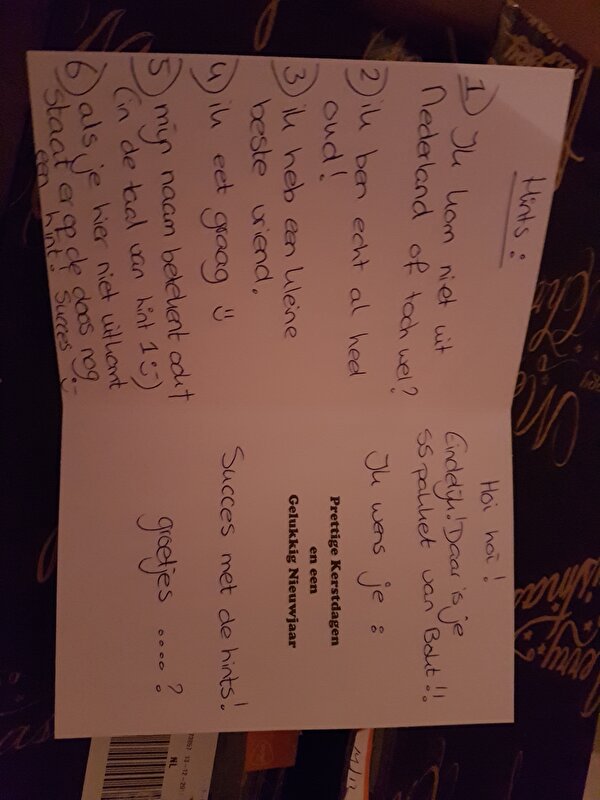 Hints:
1) Ik kom niet uit
Nederland of toch wel?
2) ik ben echt al heel
oud!
3) ik heb een kleine
beste vriend.
4) ik eet graag :)
5) mijn naam betekent acht
(in de taal van hint 1 :))
6) als je hier niet uitkomt
staat er op de doos nog
een hint. succes :)
Hoi hoi!
Eindelijk! Daar is je
SSpakket van Bolt!!
Ik wens je :
Prettige Kerstdagen
en een
Gelukkig Nieuwjaar
Succes met de hints!
groetjes ....?
NL
11/12